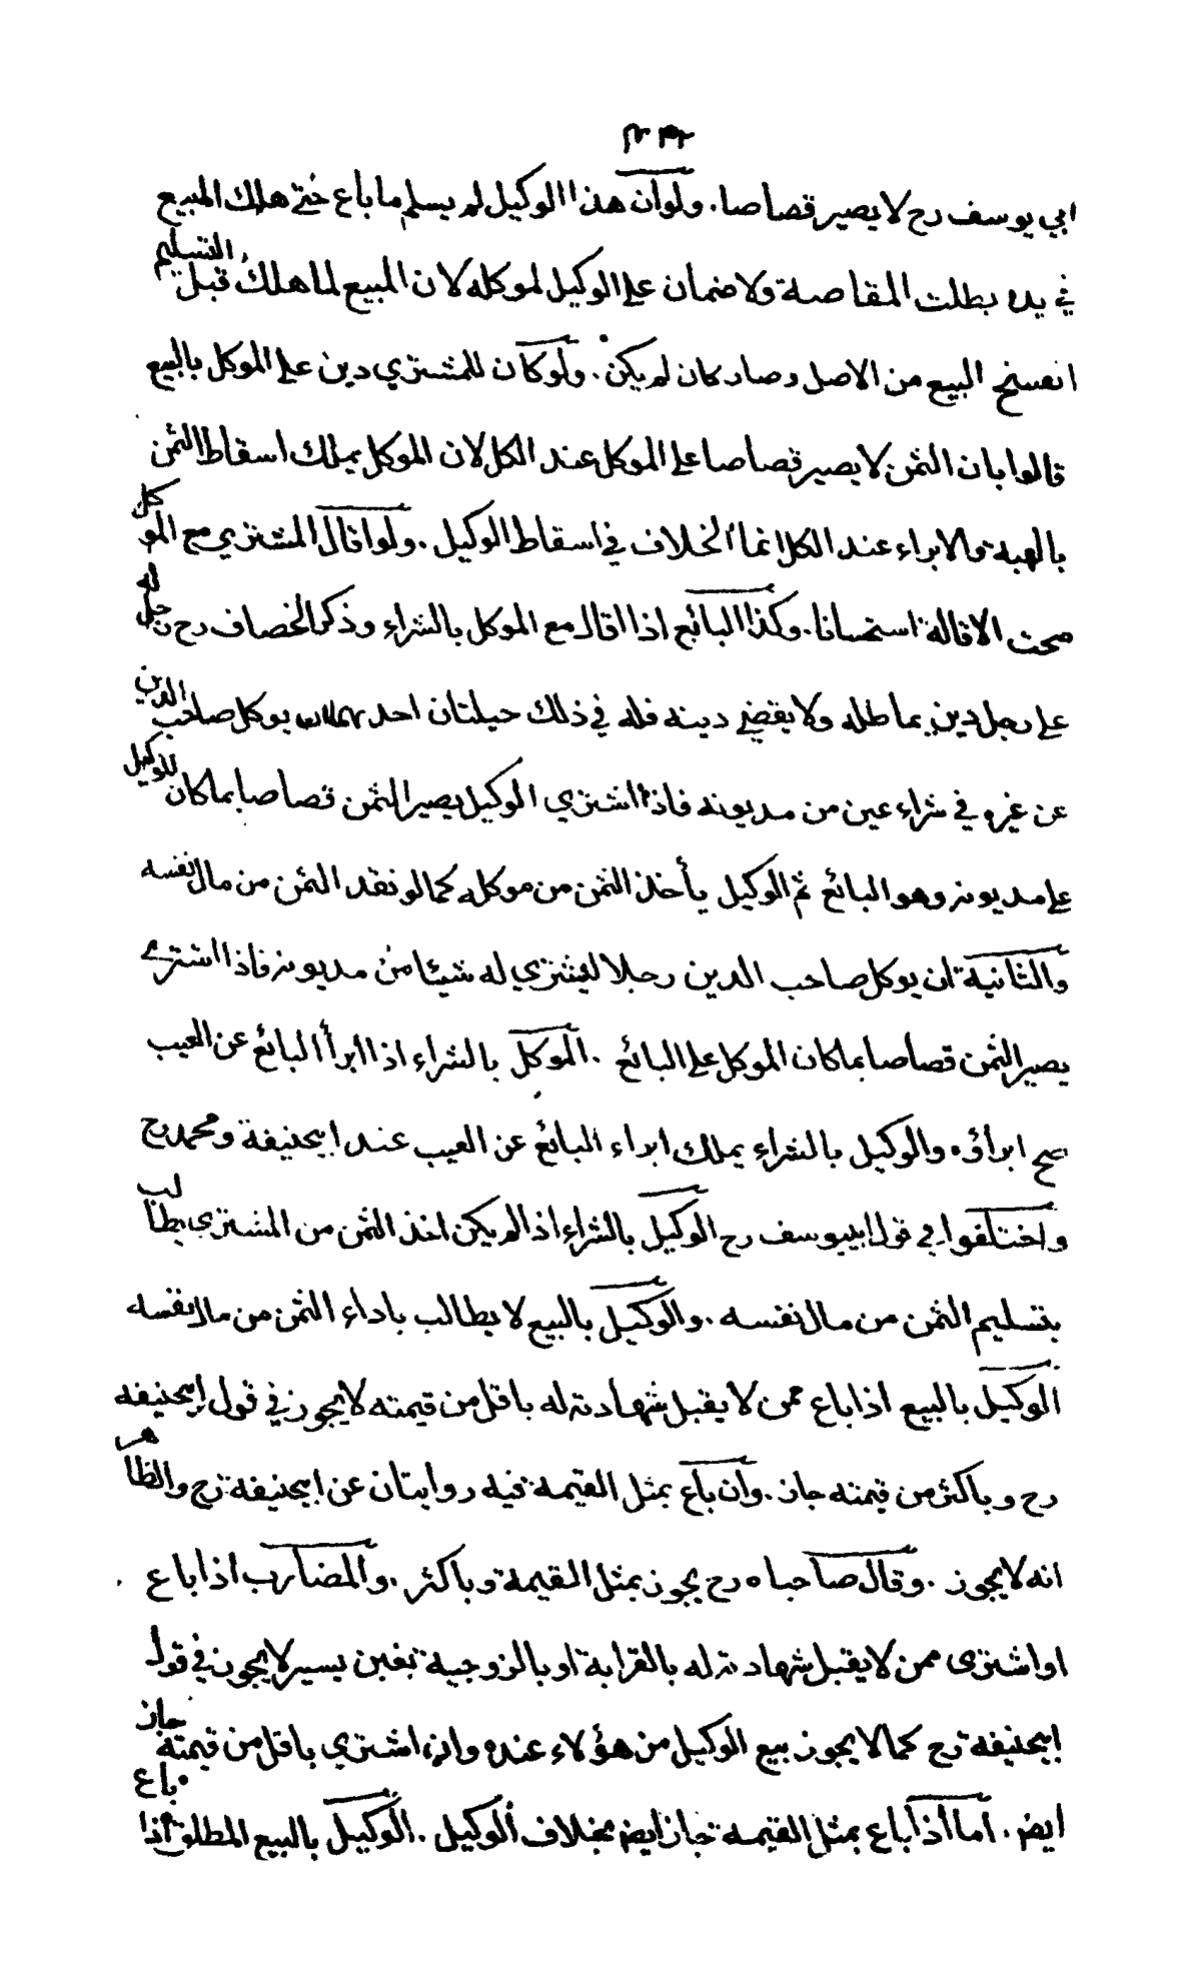 ابي يوسف رح لا يصير قصاصا . ولو ان هذا الوكيل لم يسلم ما باع حتى هلك المبيع
في يده بطلت المقاصة ولا ضمان على الوكيل لموكله لان المبيع لما هلك قبل التسليم
انفسخ البيع من الاصل وصار كان لم يكن . ولو كان للمشتري دين على الموكل بالبيع
قالوا بان الثمن لا يصير قصاصا على الموكل عند الكل لان الموكل يملك اسقاط الثمن
بالهبة والابراء عند الكل انما الخلاف في اسقاط الوكيل . ولو اقال المشتري مع الموكل
صحت الاقالة استحسانا . وكذا البائع اذا اقال مع الموكل بالشراء وذكر الخصاف رح رجل له
على رجل دين يماطله ولا يقضي دينه فله في ذلك حيلتان احدهما ان يوكل صاحب الدين
عن غيره في شراء عين من مديونه فاذا اشتري الوكيل يصير الثمن قصاصا بما كان للوكيل
على مديونه وهو البائع ثم الوكيل يأخذ الثمن من موكله كما لو نقد الثمن من مال نفسه
والثانية ان يوكل صاحب الدين رجلا ليشتري له شيئا من مديونه فاذا اشترى
يصير الثمن قصاصا بما كان الموكل على البائع . الموكل بالشراء اذا ابرأ البائع عن العيب
صح ابراؤه والوكيل بالشراء يملك ابراء البائع عن العيب عند ابيحنيفة ومحمد رح
واختلفوا في قول ابييوسف رح الوكيل بالشراء اذا لم يكن اخذ الثمن من المشتري يطالب
بتسليم الثمن من مال نفسه . والوكيل بالبيع لا يطالب باداء الثمن من مال نفسه
الوكيل بالبيع اذا باع ممن لا يقبل شهادته له باقل من قيمته لا يجوز في قول ابيحنيفه
رح وباكثر من قيمته جاز . وان باع بمثل القيمة فيه روايتان عن ابيحنيفة رح والظاهر
انه لا يجوز . وقال صاحباه رح يجوز بمثل القيمة وباكثر . والمضارب اذا باع
او اشترى ممن لا يقبل شهادته له بالقرابة او بالزوجية بغبن يسير لا يجوز في قول
ابيحنيفة رح كما لا يجوز بيع الوكيل من هؤلاء عنده وان اشتري باقل من قيمته جاز
ايض . اما اذا باع بمثل القيمة جاز ايض بخلاف الوكيل . الوكيل بالبيع المطلق اذا باع